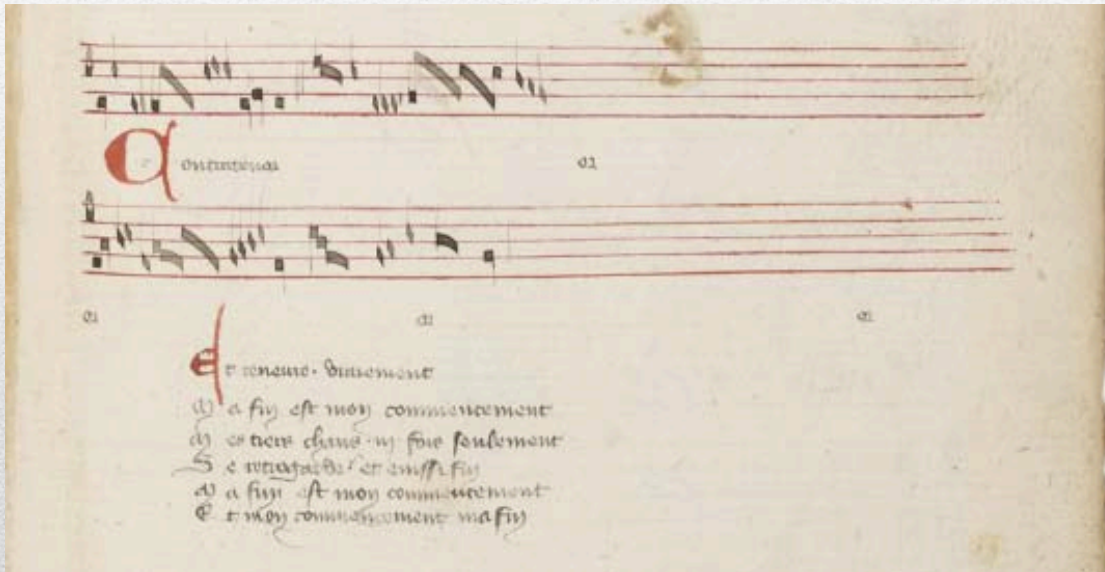 Contratenor
Et teneure vraiement
Ma fin est mon commencement
Mes tiers chans iij fois seulement
Se retrogarde et einssi fin
Ma fin est mon commencement
Et mon commencement ma fin